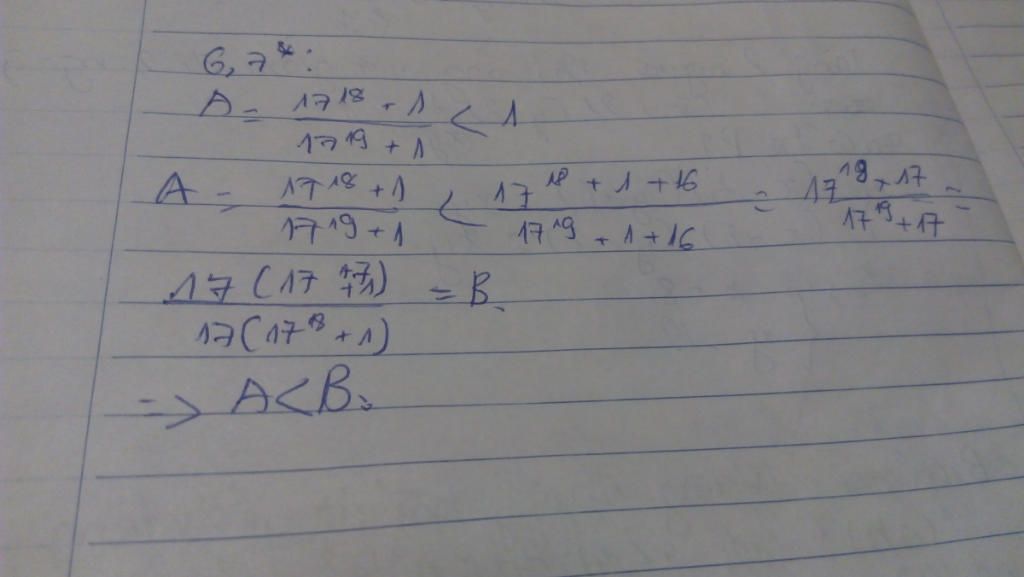 6,7*:
A = (17^18 + 1)/(17^19 + 1) < 1
A = (17^18 + 1)/(17^19 + 1) < (17^18 + 1 + 16)/(17^19 + 1 + 16) = (17^18 + 17)/(17^19 + 17) =
17(17^17 + 1)/17(17^18 + 1) = B.
=> A < B.